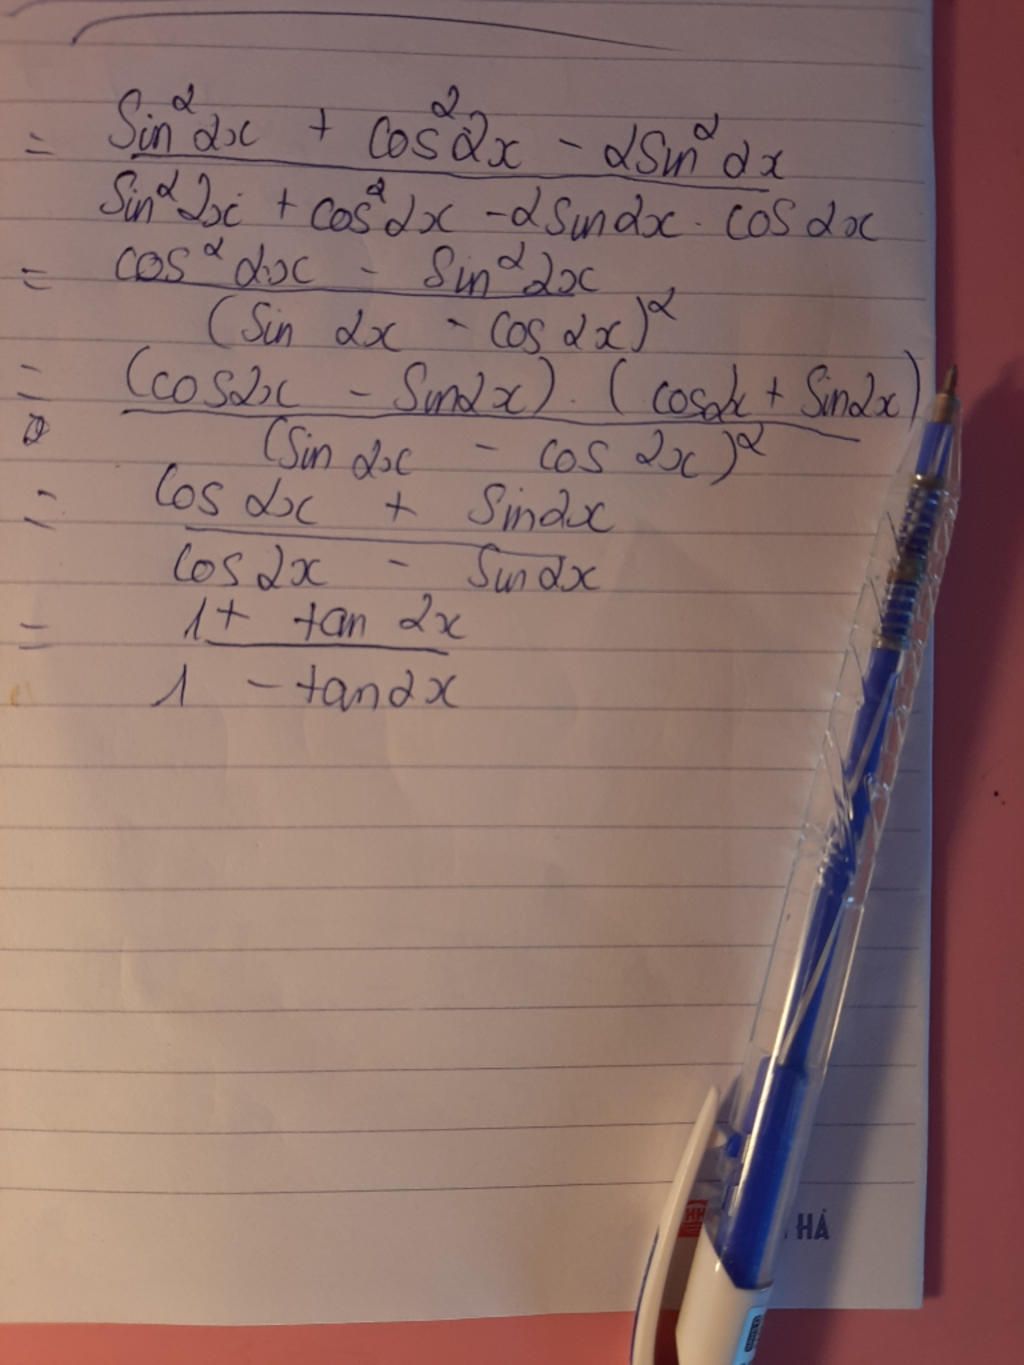 = sin²2x + cos²2x - 2sin²2x
sin²2x + cos²2x - 2sin2x . cos2x
= cos²2x - sin²2x
(sin 2x - cos 2x)²
= (cos2x - sin2x) . (cos2x + sin2x)
(sin 2x - cos 2x)²
= cos 2x + sin2x
cos 2x - sin 2x
= 1 + tan 2x
1 - tan2x
HÀ